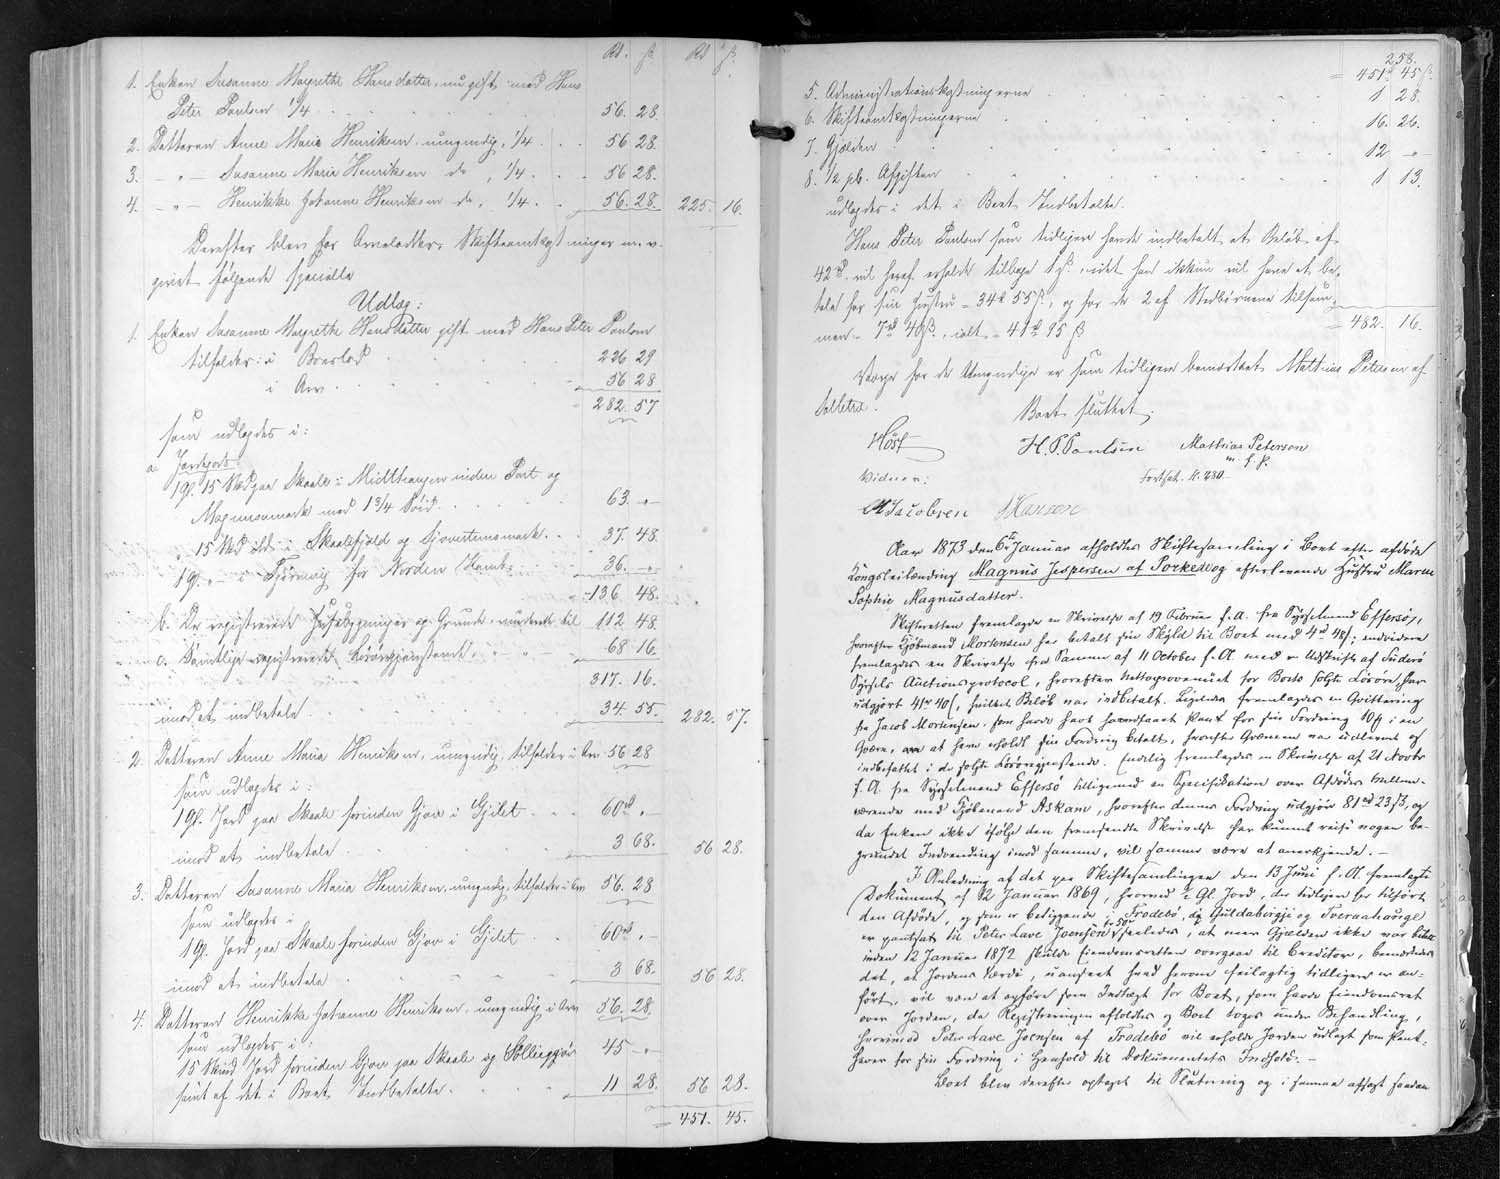 Rd. ß. Rd ß.
1. Enken Susanne Magrethe Hansdatter, nu gift med Hans
Peter Poulsen 1/4 . . . 56. 28.
2. Datteren Anne Maria Henriksen, umyndig, 1/4 . . 56 28.
3. — " — Susanne Maria Henriksen do, 1/4 . . 56 28.
4. — " — Henrikke Johanne Henriksen do, 1/4 . . 56. 28. 225. 16.
Derefter blev for Arvelodder, Skifteomkostninger m. v.
gjort følgende specielle
Udlæg:
1. Enken Susanne Magrethe Hansdatter gift med Hans Peter Poulsen
tilfalder: i Boeslod . . . 226 29
i Arv . . . 56 28
= 282. 57
som udlægges i:
a. Jordegods:
1 Gl. 15 Skd paa Skaale: Midttangen inden Port og
Magnusmark med 1 3/4 . . . 63. "
15 Skd i Skaalefjeld og . . . 37. 48.
1 Gl. " i for Norden . . . 36. "
136. 48.
b. De registrerede Huusbygninger og Grunde, vurderet til 112 48
c. Samtlige registrerede Løsøregjenstande, — " — " — 68 16.
317. 16.
imod at indbetale . . . 34. 55. 282. 57.
2. Datteren Anne Maria Henriksen, umyndig, tilfalder i Arv 56 28
som udlægges i:
1 Gl. Jord paa Skaale forinden Gjov i Gjilet . . . 60rd ".
imod at indbetale . . . 3 68. 56 28.
3. Datteren Susanne Maria Henriksen, umyndig, tilfalder i Arv 56. 28
som udlægges i
1 Gl. Jord paa Skaale forinden Gjov i Gjilet . . 60rd ".
imod at indbetale . . . 3 68. 56 28.
4. Datteren Henrikke Johanne Henriksen, umyndig i Arv 56. 28.
som udlægges i:
15 Skind Jord forinden Gjov paa Skaale og 45 "
samt af det i Boet Indbetalte . . . 11 28. 56 28.
= 451. 45.
258.
= 451rd 45ß.
5. Administrationskostningerne . . . 1 28.
6. Skifteomkostningerne . . . 16. 26.
7. Gjælden . . . 12 "
8. 1/2 pCt. Afgiften . . . 1 13.
udlægges i det i Boet Indbetalte.
Hans Peter Poulsen som tidligere havde indbetalt et Beløb af
42rd vil heraf erholde tilbage 1ß, idet han ikkun vil have at be-
tale for sin Hustru = 34rd 55ß, og for de 2 af Stedbørnene tilsam-
men = 7rd 40ß, ialt = 41rd 95ß = 482. 16.
Værge for de Umyndige er som tidligere bemærket Matthias Petersen af
Boet sluttet.
Høst H. P. Poulsen Mathias Peterson
m. f. P.
Vidner: Fortsat. S. 280
Jacobsen Hansen
Aar 1873 den 6te Januar afholdtes Skiftesamling i Boet efter afdøde
Kongsleilænding Magnus Jespersen af Porkere og efterlevende Hustru Maren
Sophie Magnusdatter.
Skifteretten fremlagde en Skrivelse af 19 Februar f. A. fra Sysselmand Effersø,
hvorefter Kjøbmand Mortensen har betalt sin Skyld til Boet med 4rd 48ß; endvidere
fremlagdes en Skrivelse fra Samme af 11 October f. A. med en Udskrift af Suderø
Syssels Auctionsprotocol, hvorefter Nettoprovenuet for Boets solgte Løsøre har
udgjort 41rd 40ß, hvilket Beløb var indbetalt. Ligeledes fremlagdes en Qvittering
fra Jacob Mortensen, som havde havt haandfaaet Pant for sin Fordring 10ß i en
Qværn, om at have erholdt sin Fordring betalt, hvorefter Qværnen var udleveret og
indbefattet i de solgte Løsøregjenstande. Endelig fremlagdes en Skrivelse af 21 Novbr
f. A. fra Sysselmand Effersø tilligemed en Specifikation over Afdødes Mellem-
værende med Kjøbmand Askam, hvorefter dennes Fordring udgjør 81rd 23ß, og
da Enken ikke ifølge den fremsendte Skrivelse har kunnet reise nogen be-
grundet Indvending imod samme, vil samme være at anerkjende. —
I Anledning af det paa Skiftesamlingen den 13 Juni f. A. fremlagte
Dokument af 12 Januar 1869, hvorved Gl. Jord, der tidligere har tilhørt
den Afdøde, og som er beliggende i Frodebø, og
er pantsat til Peter Lave Joensen saaledes, at naar Gjælden ikke var betalt
inden 12 Januar 1872 skulde Eiendomsretten overgaae til Creditor, bemærkedes
det, at Jordens Værdi, uanseet hvad herom feilagtig tidligere er an-
ført, vil være at opføre som Indtægt for Boet, som havde Eiendomsret
over Jorden, da Registreringen afholdtes og Boet toges under Behandling,
hvorimod Peter Lave Joensen af Frodebø vil erholde Jorden udlagt som Pant-
haver for sin Fordring i Henhold til Dokumentets Indhold. —
Boet blev derefter optaget til Slutning og i samme afsagt saadan